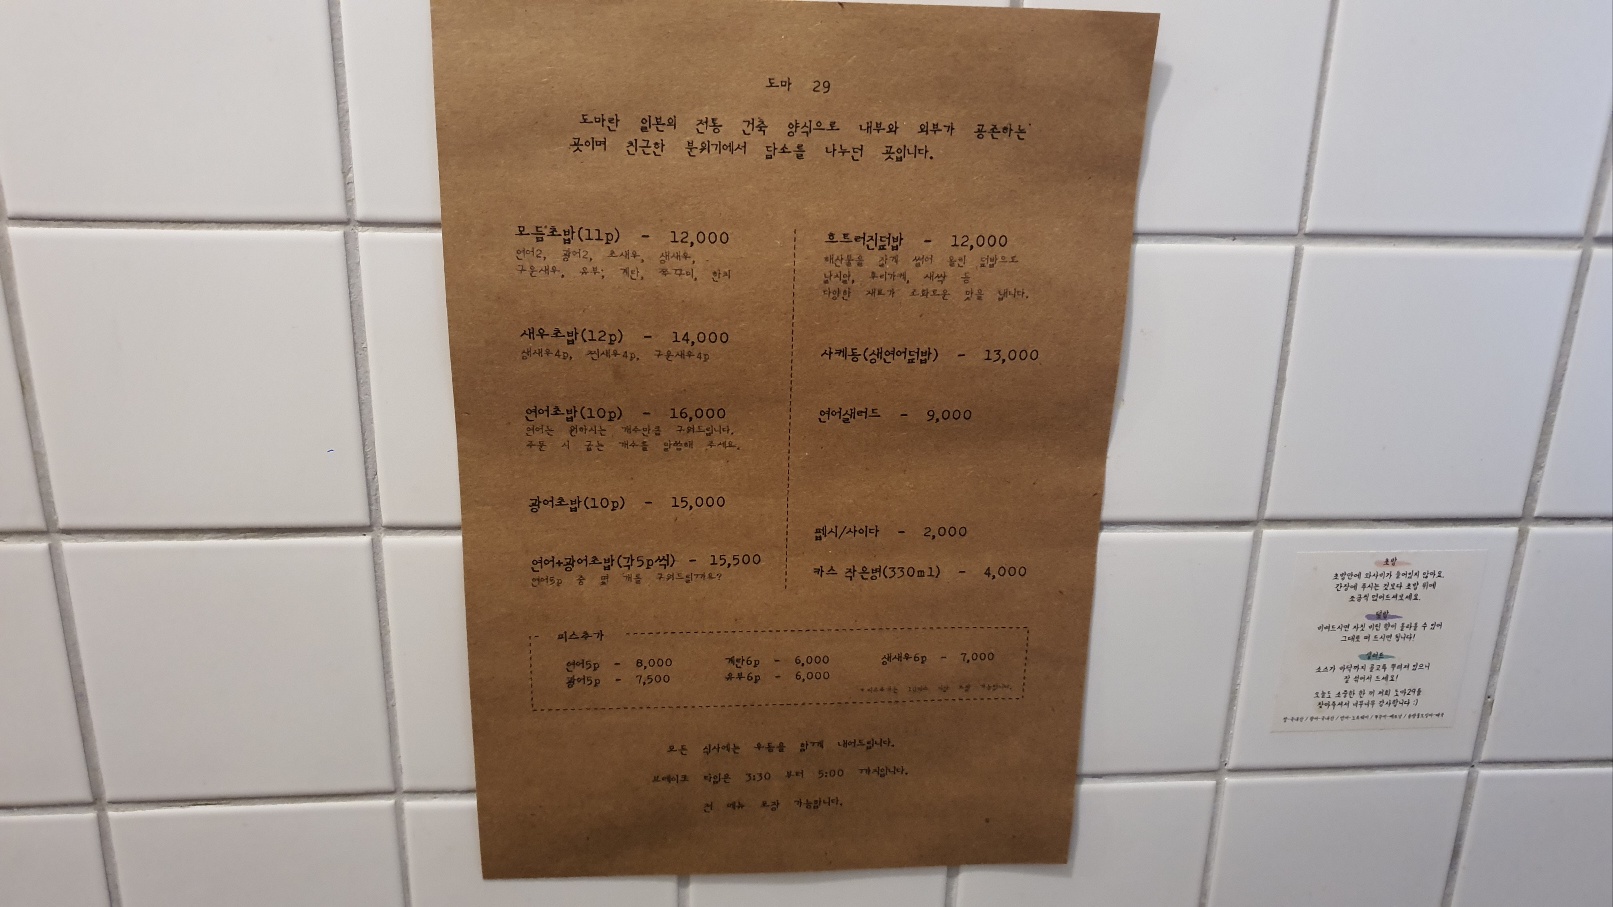 도마 29
도마란 일본의 전통 건축 양식으로 내부와 외부가 공존하는
곳이며 친근한 분위기에서 담소를 나누던 곳입니다.
모듬초밥(11p) - 12,000
연어2, 광어2, 초새우, 생새우,
구운새우, 유부, 계란, 한치
새우초밥(12p) - 14,000
생새우4p, 찐새우4p, 구운새우4p
연어초밥(10p) - 16,000
연어는 원하시는 개수만큼 구워드립니다.
주문 시 굽는 개수를 말씀해 주세요.
광어초밥(10p) - 15,000
연어+광어초밥(각5p씩) - 15,500
연어5p 중 몇 개를 구워드릴까요?
흐트러진덮밥 - 12,000
해산물을 잘게 썰어 올린 덮밥으로
날치알, 후리가케, 새싹 등
다양한 재료가 조화로운 맛을 냅니다.
사케동(생연어덮밥) - 13,000
연어샐러드 - 9,000
펩시/사이다 - 2,000
카스 작은병(330ml) - 4,000
피스추가
연어5p - 8,000 계란6p - 6,000 생새우6p - 7,000
광어5p - 7,500 유부6p - 6,000
모든 식사에는 우동을 함께 내어드립니다.
브레이크 타임은 3:30 부터 5:00 까지입니다.
전 메뉴 포장 가능합니다.
초밥
초밥안에 와사비가 들어있지 않아요.
간장에 푸시는 것보다 초밥 위에
조금씩 얹어드셔보세요.
덮밥
비벼드시면 자칫 비린 향이 올라올 수 있어
그대로 떠 드시면 됩니다!
샐러드
소스가 바닥까지 골고루 뿌려져 있으니
잘 섞어서 드세요!
오늘도 소중한 한 끼 저희 도마29를
찾아주셔서 너무너무 감사합니다 :)